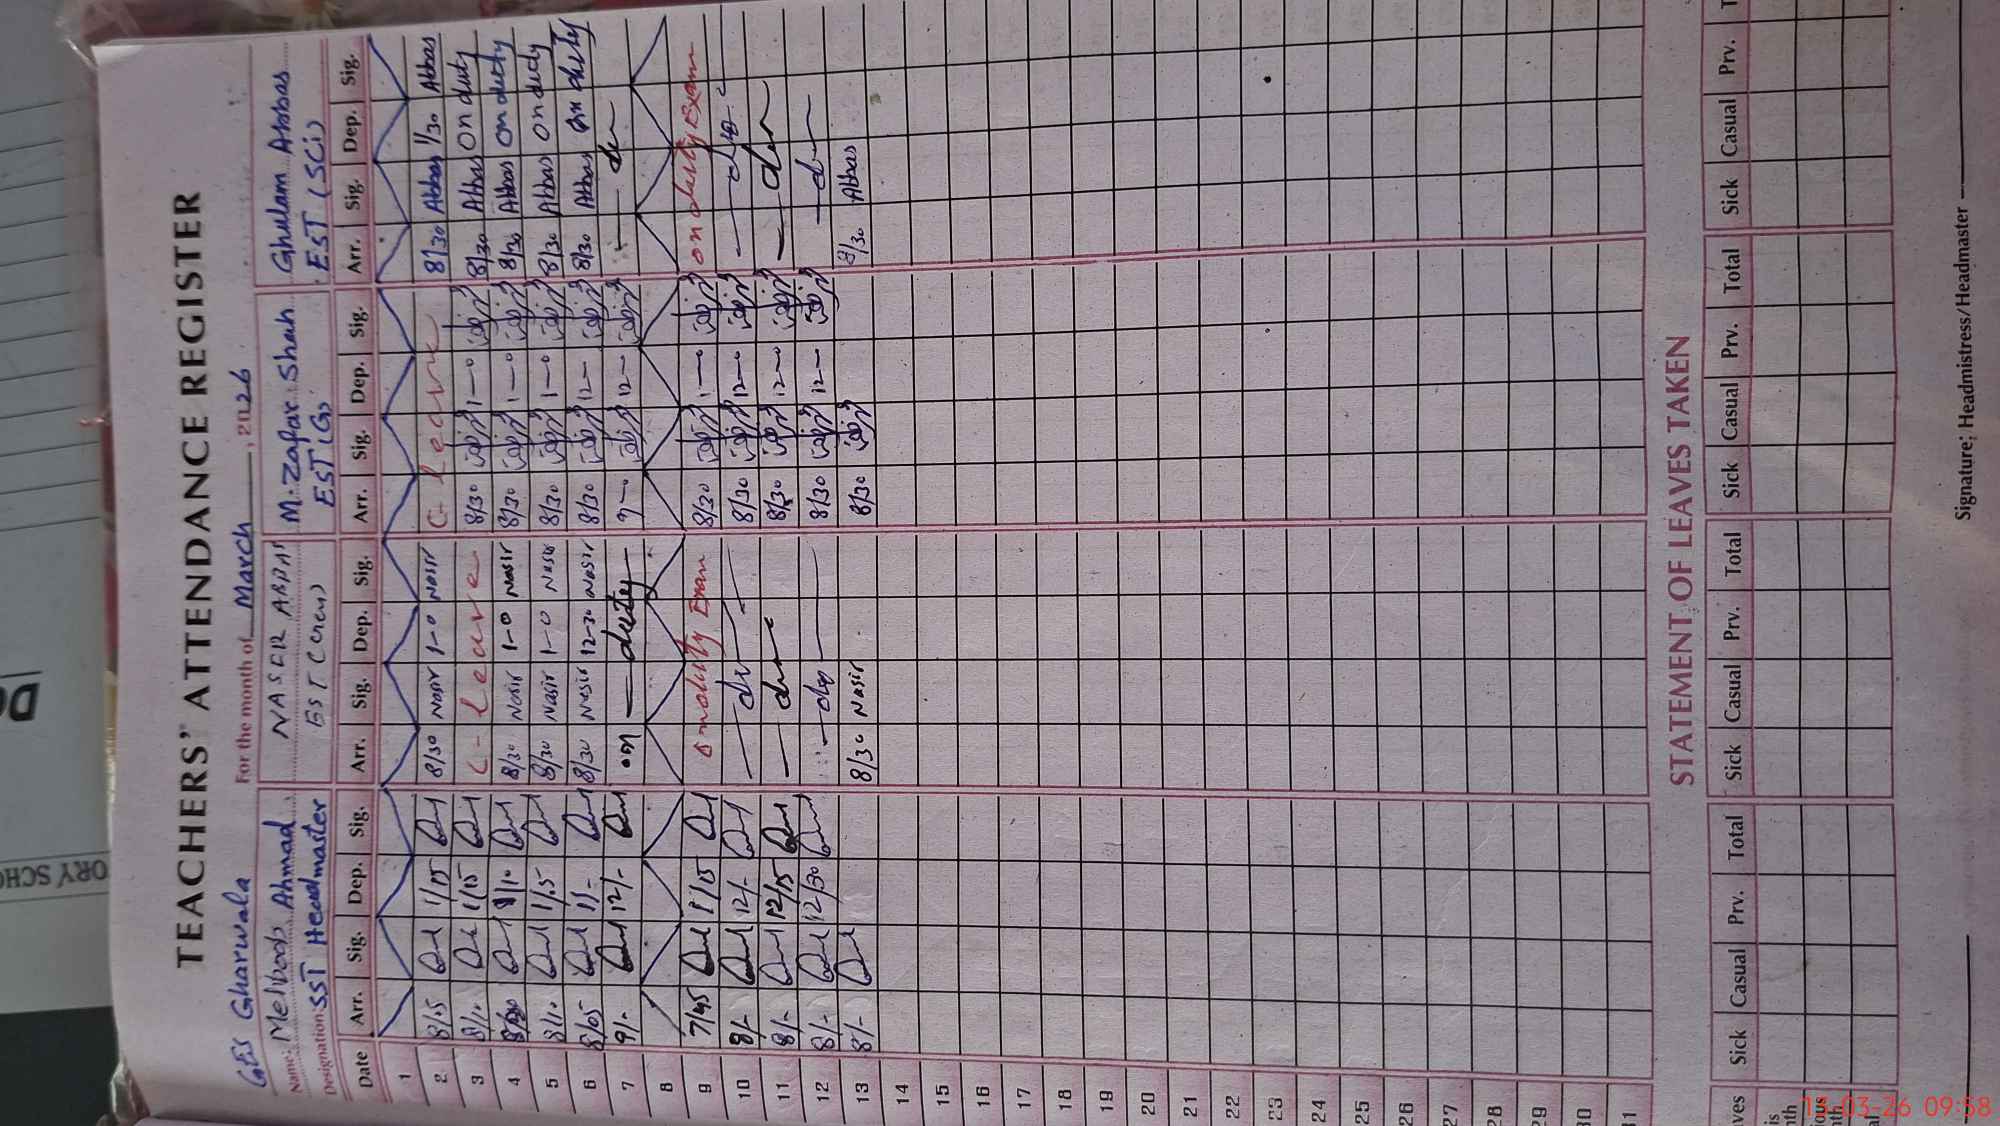 TEACHERS' ATTENDANCE REGISTER
GES Gharwala For the month of March, 2026
Name: Mehboob Ahmad NASIR ABBAS M. Zafar Shah Ghulam Abbas
Designation: SST Headmaster EST EST (G) EST (SCi)
Date Arr. Sig. Dep. Sig. Arr. Sig. Dep. Sig. Arr. Sig. Dep. Sig. Arr. Sig. Dep. Sig.
1
2 8/15 1/15 8/30 Nasir 1-0 Nasir C- leave 8/30 Abbas 1/30 Abbas
3 8/10 1/15 C- leave 8/30 1-0 8/30 Abbas On duty
4 1/10 8/30 Nasir 1-0 Nasir 8/30 1-0 8/30 Abbas On duty
5 8/10 1/15 8/30 Nasir 1-0 Nasir 8/30 1-0 8/30 Abbas On duty
6 8/05 1/- 8/30 Nasir 12-30 Nasir 8/30 12- 8/30 Abbas On duty
7 9/- 12/- on duty 9-0 12- do
8
9 7/45 1/15 On duty Exam 8/30 1-0 on duty Exam
10 8/- 12/- do 8/30 12-0 do
11 8/- 12/15 do 8/30 12-0 do
12 8/- 12/30 do 8/30 12- do
13 8/- 8/30 Nasir 8/30 8/30 Abbas
14
15
16
17
18
19
20
21
22
23
24
25
26
27
28
29
30
31
STATEMENT OF LEAVES TAKEN
ves Sick Casual Prv. Total Sick Casual Prv. Total Sick Casual Prv. Total Sick Casual Prv. T
is
nth
ious
nth
al
Signature; Headmistress/Headmaster
ORY SCHO
DO
13-03-26 09:58